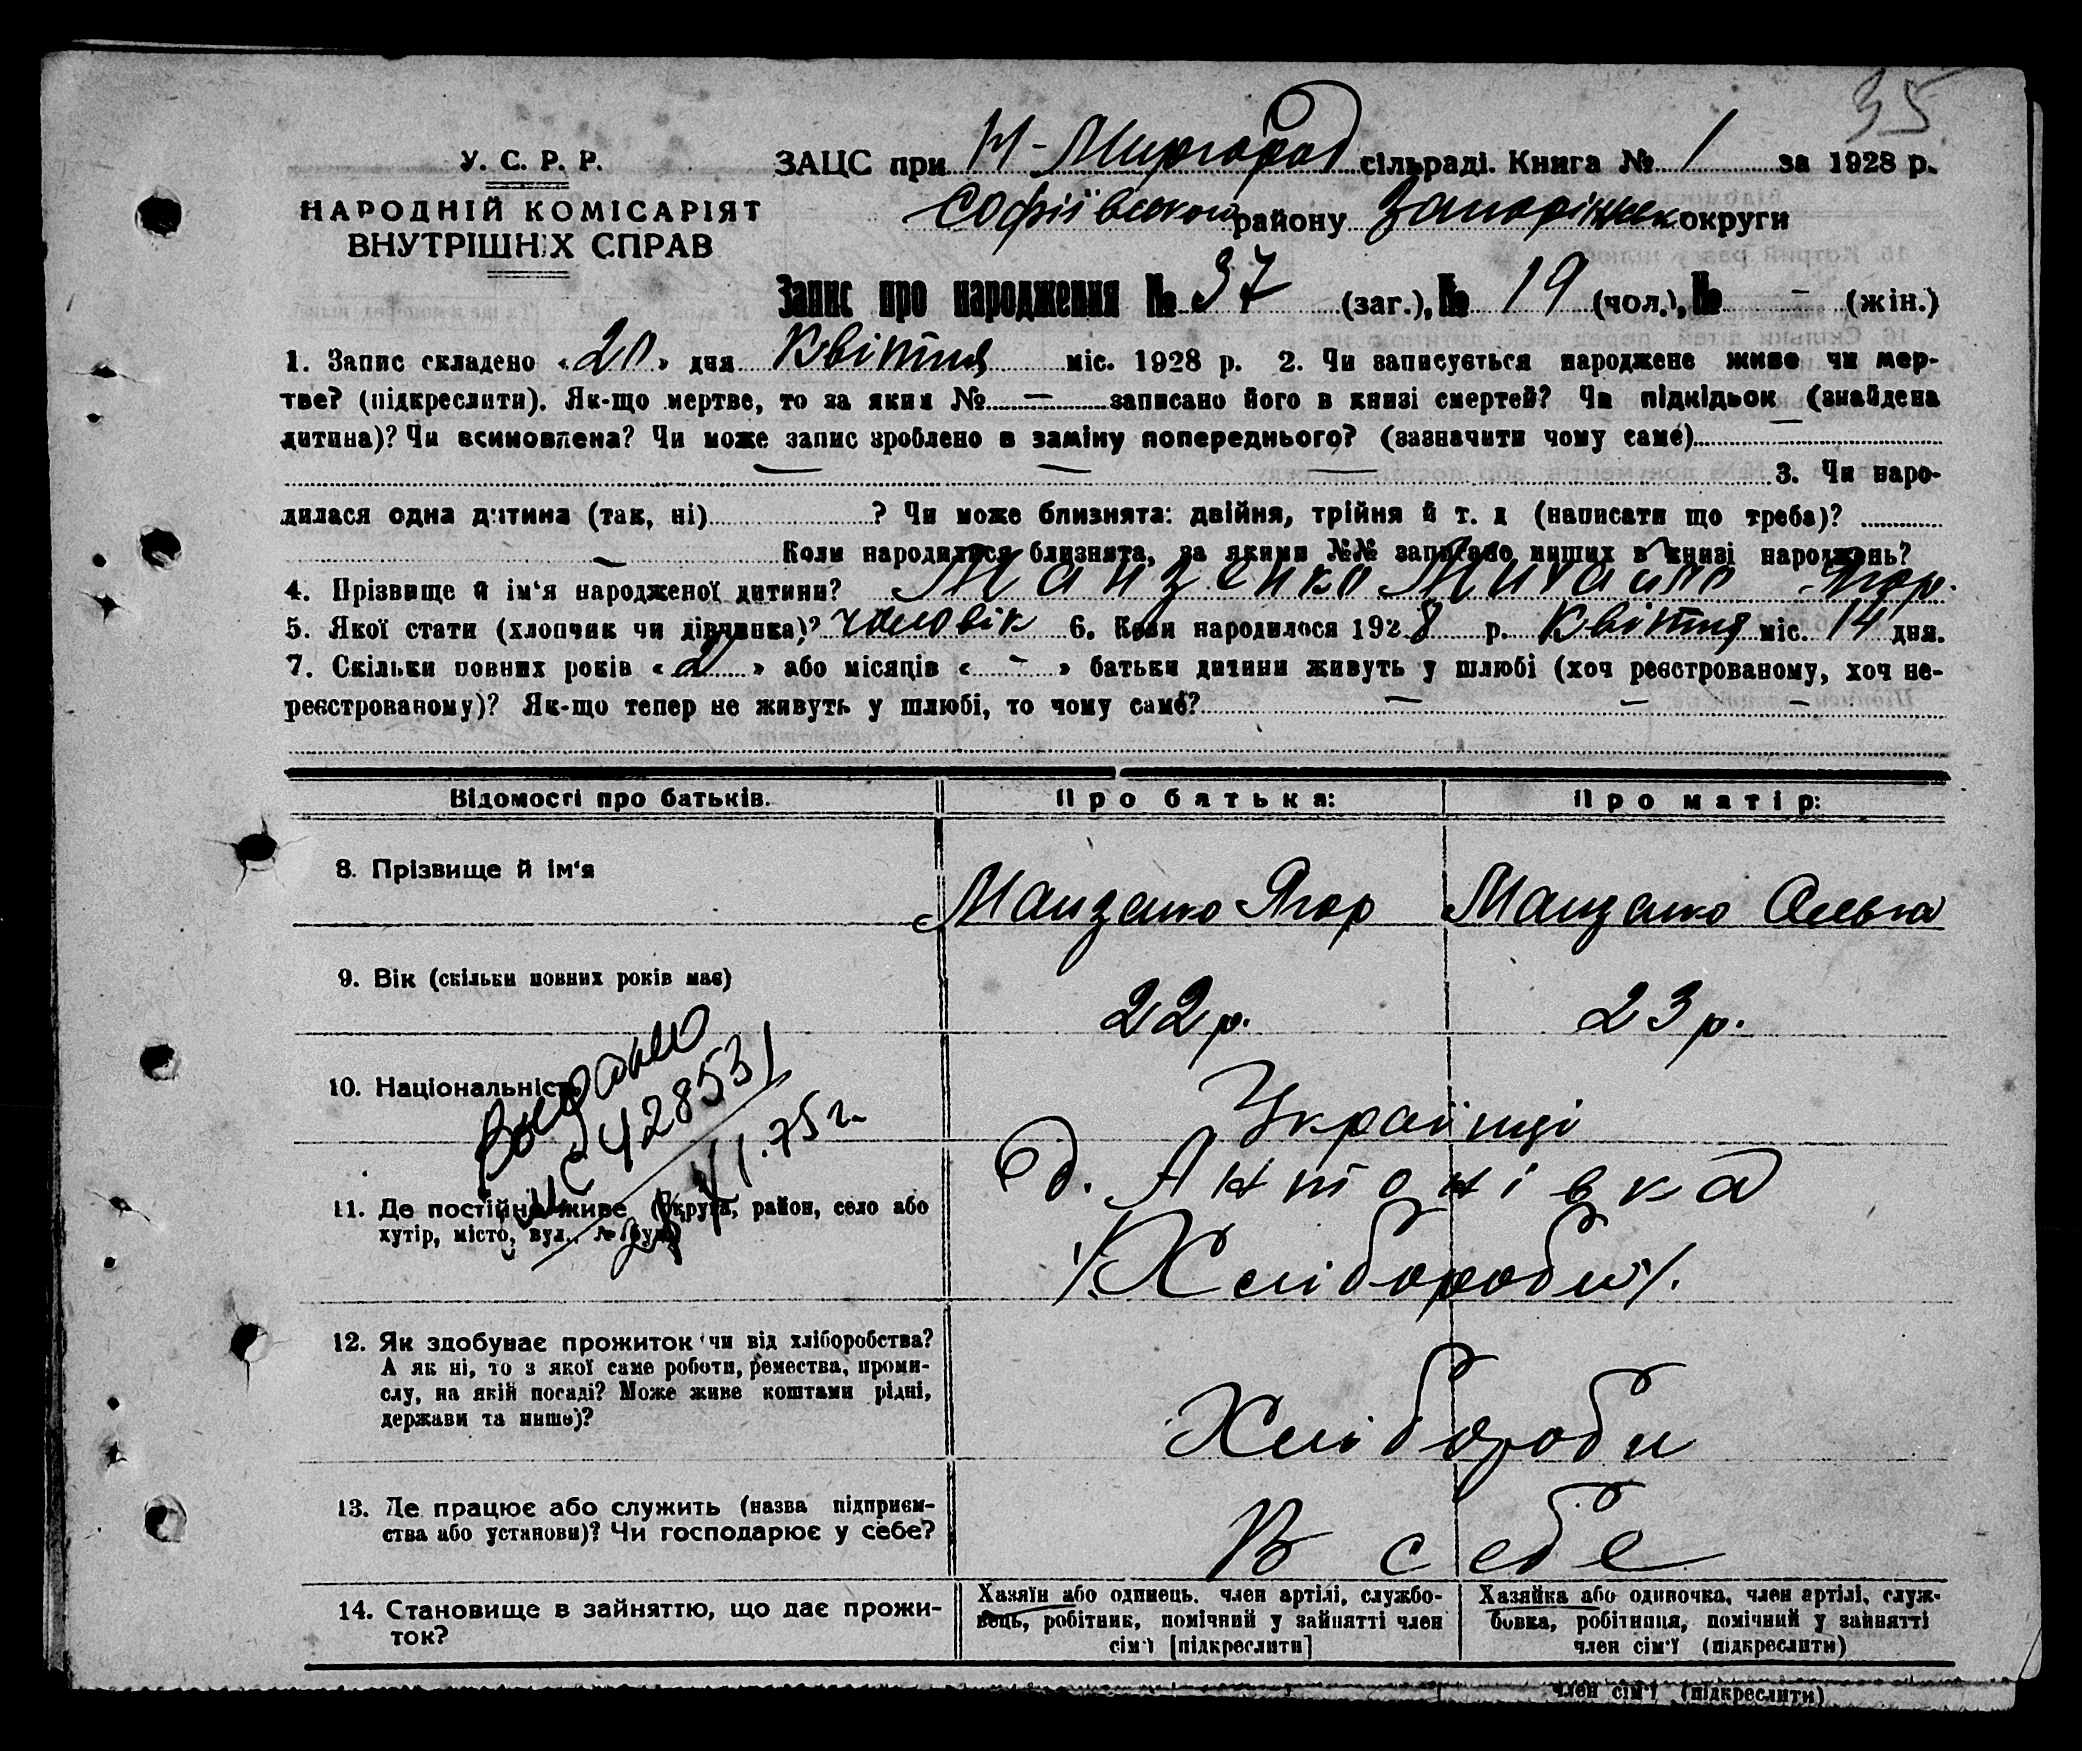 35
У. С. Р. Р.
НАРОДНІЙ КОМІСАРІЯТ
ВНУТРІШНІХ СПРАВ
ЗАЦС при Н-Миргород сільраді. Книга № 1 за 1928 р.
Софіївського району Запоріжськ округи
Запис про народження № 37 (заг.), № 19 (чол.), № - (жін.)
1. Запис складено «20» дня Квітня міс. 1928 р. 2. Чи записується народжене живе чи мер-
тве? (підкреслити). Як-що мертве, то за яким № — записано його в книзі смертей? Чи підкідьок (знайдена
дитина)? Чи всиновлена? Чи може запис зроблено в заміну попереднього? (зазначити чому саме) —
— — — 3. Чи наро-
дилася одна дитина (так, ні) ? Чи може близнята: двійня, трійня й т. д (написати що треба)?
— Коли народилися близнята, за якими №№ записано инших в книзі народжень?
4. Прізвище й ім‘я народженої дитини? Манзенко Михайло Ягор.
5. Якої стати (хлопчик чи дівчинка)? чоловік 6. Коли народилося 1928 р. Квітня міс. 14 дня.
7. Скільки повних років «2» або місяців « - » батьки дитини живуть у шлюбі (хоч реєстрованому, хоч не-
реєстрованому)? Як-що тепер не живуть у шлюбі, то чому саме? — — —
Відомості про батьків. Про батька: Про матір:
8. Прізвище й ім‘я Манзенко Ягор Манзенко Ольга
9. Вік (скільки повних років має) 22 р. 23 р.
10. Національність Українці
428531
11. Де постійно живе (округа, район, село або
хутір, місто, вул., № буд.)
75 г.
с. Антонівка
/Хлібороби/.
12. Як здобуває прожиток чи від хліборобства?
А як ні, то з якої саме роботи, ремества, проми-
слу, на якій посаді? Може живе коштами рідні,
держави та инше)?
Хлібороби
13. Де працює або служить (назва підприєм-
ства або установи)? Чи господарює у себе?
В себе
14. Становище в зайняттю, що дає прожи-
ток?
Хазяїн або одинець, член артілі, службо-
вець, робітник, помічний у зайнятті член
сім‘ї [підкреслити]
Хазяйка або одиночка, член артілі, служ-
бовка, робітниця, помічний у зайнятті
член сім‘ї (підкреслити)
член сім‘ї (підкреслити)